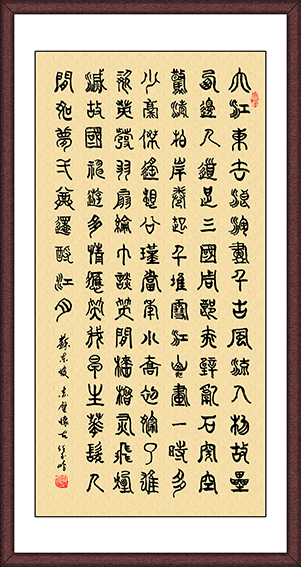 大江東去浪淘盡千古風流人物故壘
西邊人道是三國周郎赤壁亂石穿空
驚濤拍岸卷起千堆雪江山畫一時多
少豪傑遙想公瑾當年小喬初嫁了雄
姿英發羽扇綸巾談笑間檣櫓灰飛煙
滅故國神遊多情應笑我早生華髮人
間如夢弌尊還酹江月
蘇東坡赤壁懷古